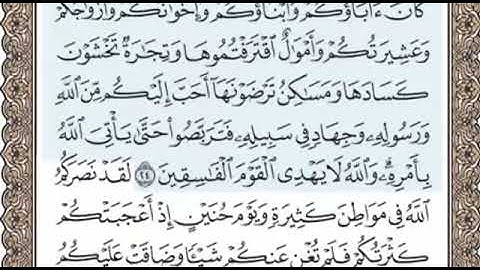 كَانَ ءَابَآؤُكُمْ وَأَبْنَآؤُكُمْ وَإِخْوَٰنُكُمْ وَأَزْوَٰجُكُمْ
وَعَشِيرَتُكُمْ وَأَمْوَٰلٌ ٱقْتَرَفْتُمُوهَا وَتِجَٰرَةٌ تَخْشَوْنَ
كَسَادَهَا وَمَسَٰكِنُ تَرْضَوْنَهَآ أَحَبَّ إِلَيْكُم مِّنَ ٱللَّهِ
وَرَسُولِهِۦ وَجِهَادٍ فِى سَبِيلِهِۦ فَتَرَبَّصُوا۟ حَتَّىٰ يَأْتِىَ ٱللَّهُ
بِأَمْرِهِۦ وَٱللَّهُ لَا يَهْدِى ٱلْقَوْمَ ٱلْفَٰسِقِينَ ٢٤ لَقَدْ نَصَرَكُمُ
ٱللَّهُ فِى مَوَاطِنَ كَثِيرَةٍ وَيَوْمَ حُنَيْنٍ إِذْ أَعْجَبَتْكُمْ
كَثْرَتُكُمْ فَلَمْ تُغْنِ عَنكُمْ شَيْـًٔا وَضَاقَتْ عَلَيْكُمُ